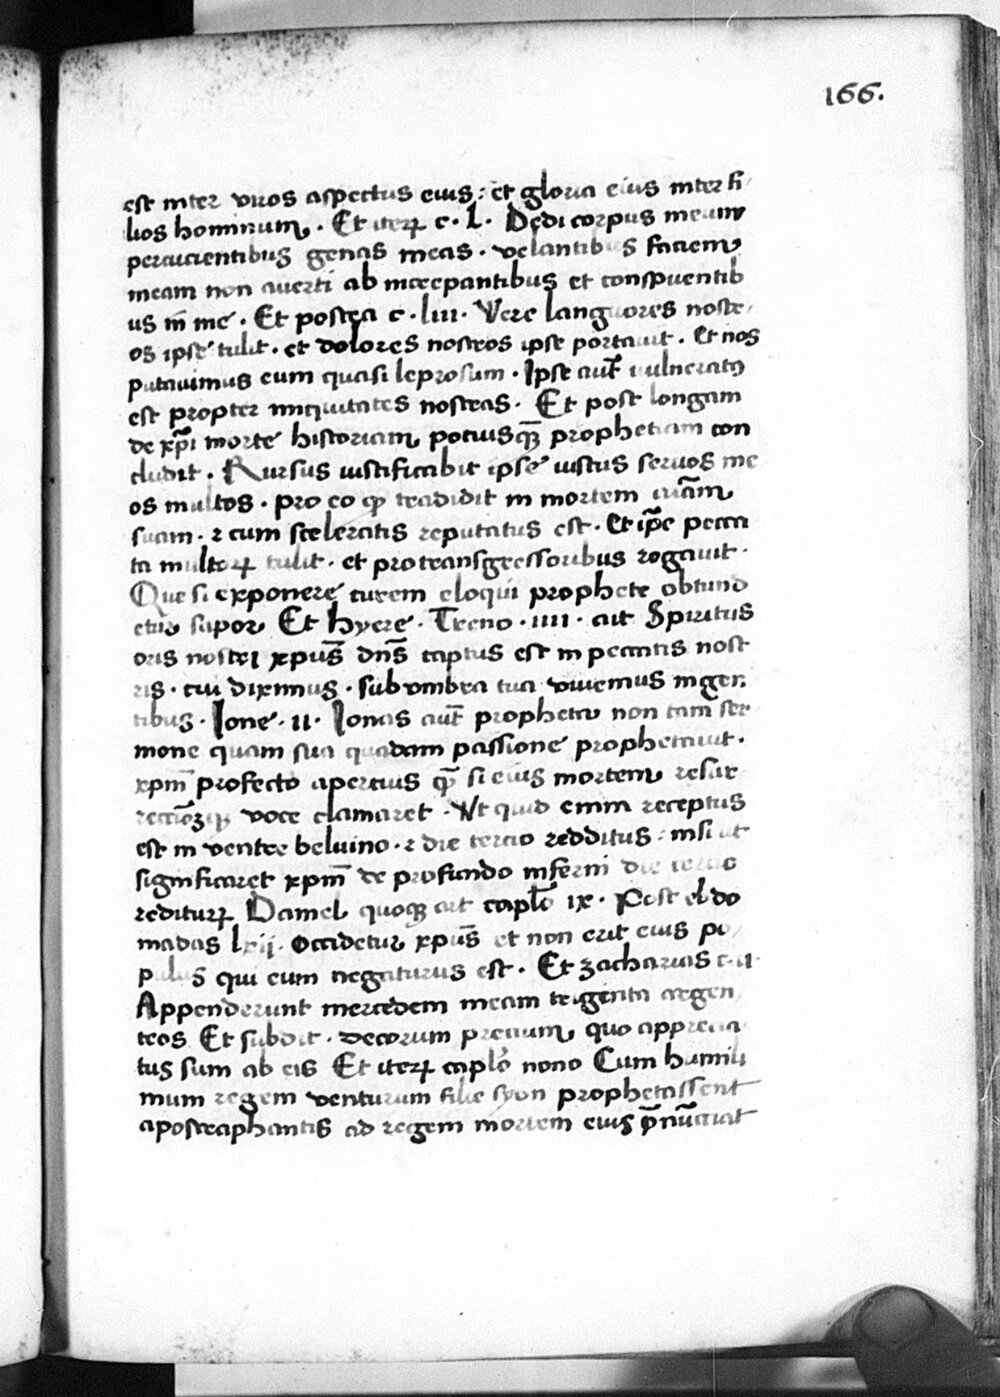 166.
est inter viros aspectus eius : et gloria eius inter fi
lios hominum . Et iterꝝ c . L . Dedi corpus meum
percucientibus genas meas . velantibus faciem
meam non averti ab increpantibus et conspuentib
us in me . Et postea c . liii . Vere languores nostr
os ipse tulit . et dolores nostros ipse portauit . Et nos
putauimus eum quasi leprosum . Ipse aut̄ vulneratꝰ
est propter iniquitates nostras . Et post longam
de xp̄i morte historiam potiusqꝫ prophetiam con
cludit . Rursus iustificabit ipse iustus seruos me
os multos . pro eo qꝫ tradidit in mortem aīam
suam . ⁊ cum sceleratis reputatus est . Et ip̄e pecca
ta multorꝝ tulit . et pro transgressoribus rogauit .
Que si exponere curem eloqui prophete obtund
etur sapor Et hyere . Treno . iiii . ait Spiritus
oris nostri xpūs dn̄s captus est in peccatis nost
ris . cui diximus . sub umbra tua viuemus in gen
tibus . Ione . ii . Ionas aut̄ propheta non tam ser
mone quam sua quadam passione prophetauit .
xpm̄ profecto apertius qꝫ si eius mortem resur
rectiōꝫqꝫ voce clamaret . Ut quid enim receptus
est in ventre beluino . ⁊ die tercio redditus : nisi ut
significaret xpm̄ de profundo inferni die tercio
rediturꝝ Daniel quoqꝫ ait caplō ix . Post ebdo
madas lxii . occidetur xpūs et non erit eius po
pulus qui eum negaturus est . Et zacharias c . ii
Appenderunt mercedem meam trigenta argen
teos Et subdit . decorum precium quo apprecia
tus sum ab eis Et iterꝝ caplō nono Cum humili
mum regem venturum filie syon prophetassent
apostraphantis ad regem mortem eius p̄nūciat